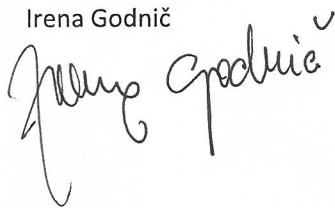 Irena Godnič
Irena Godnič